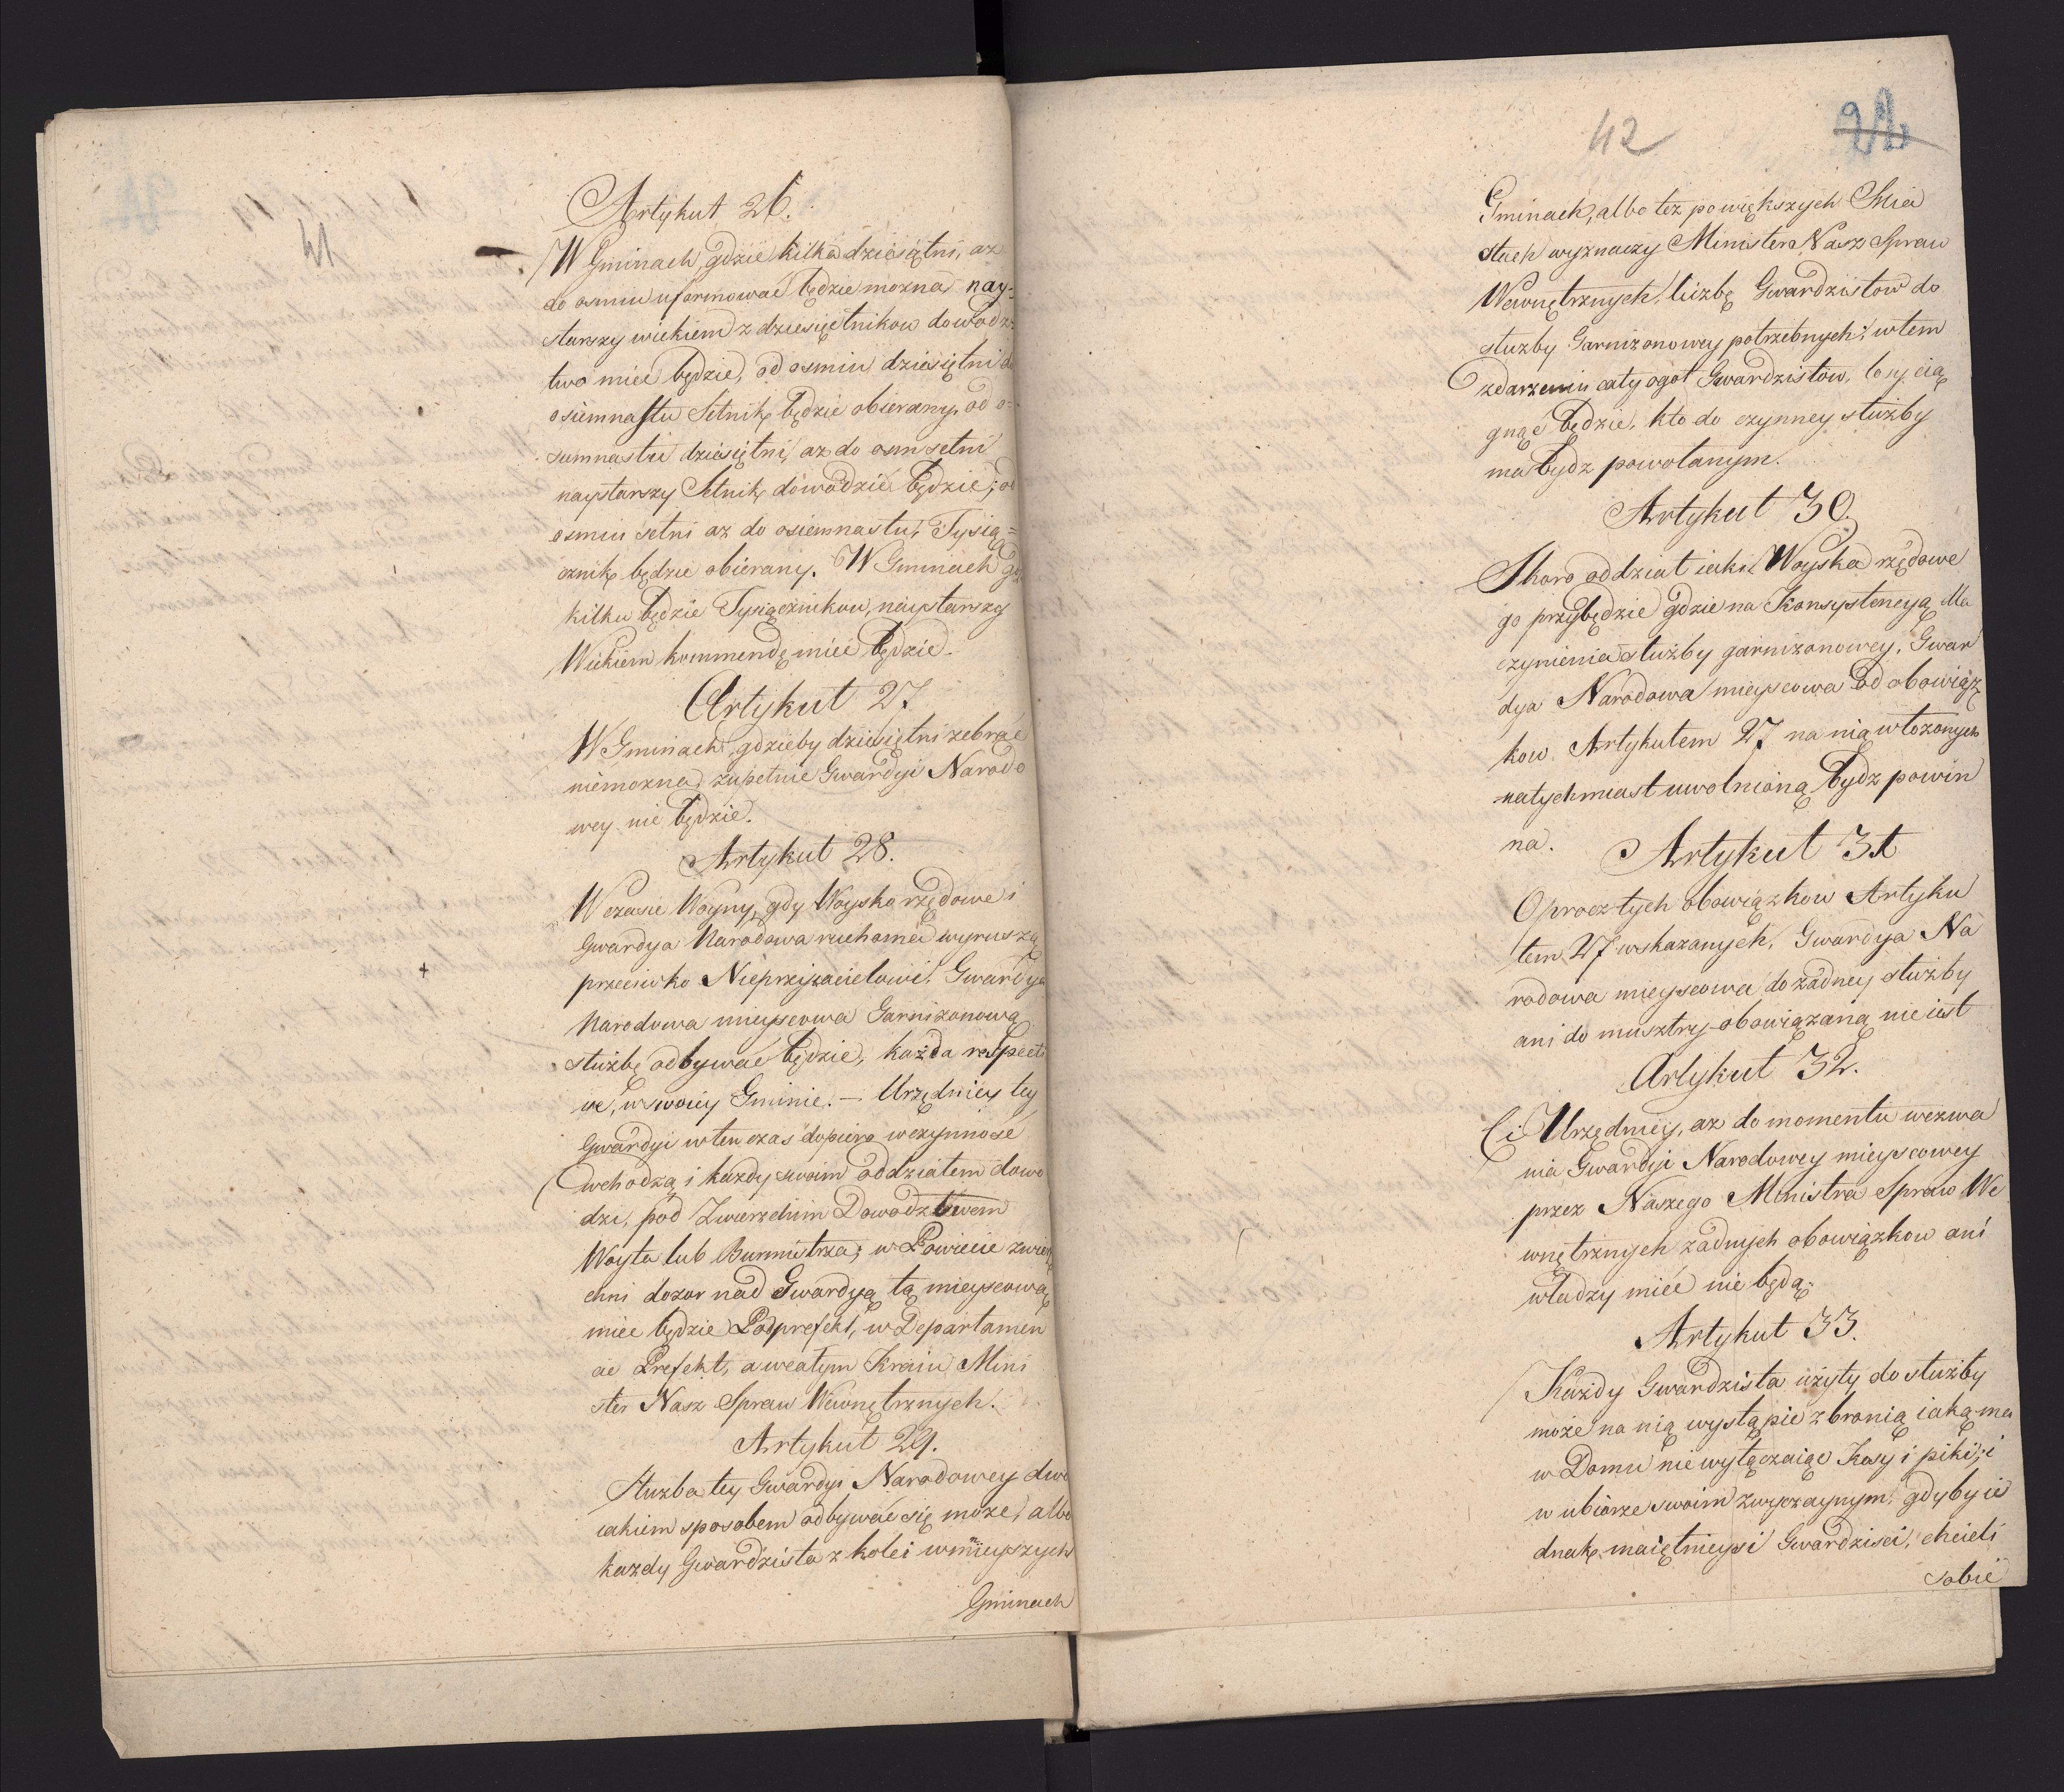 41
Artykuł 26.
W Gminach, gdzie kilka dziesiętni, aż
do osmiu uformować będzie można, nay-
starszy wiekiem z dziesiętnikow dowodz-
two mieć będzie, od osmiu dziesiętni do
osiemnastu Setnik będzie obierany, od o-
siemnastu dziesiętni, aż do osm setni
naystarszy Setnik dowodzić będzie; od
osmiu setni aż do osiemnastu, Tysią=
cznik będzie obierany. W Gminach gdz
kilku będzie Tysiącznikow, naystarszy
Wiekiem kommendę mieć będzie.
Artykuł 27
W Gminach, gdzieby dziesiętni zebrać
niemożna, zupełnie Gwardyi Narodo
wey nie będzie.
Artykuł 28.
W czasie Woyny, gdy Woysko rzędowe i
Gwardya Narodowa ruchoma wyruszą
przeciwko Nieprzyjacielowi, Gwardya
Narodowa mieyscowa Garnizonową
służbę odbywać będzie, każda respecti
ve, w swoiey Gminie. — Urzędnicy tey
Gwardyi w ten czas dopiero w czynność
wchodzą i każdy swoim oddziałem dowo
dzi, pod Zwierzchim Dowodztwem
Woyta lub Burmistrza; w Powiecie zwierz
chni dozor nad Gwardyą tą mieyscową
mieć będzie Podprefekt, w Departamen
cie Prefekt, a w całym Kraiu Mini
ster Nasz Spraw Wewnętrznych.
Artykuł 29.
Służba tey Gwardyi Narodowey dwo
iakiem sposobem odbywać się może, albo
każdy Gwardzista z kolei w mnieyszych
Gminach
42
Gminach, albo też po większych Mia
stach wyznaczy Minister Nasz Spraw
Wewnętrznych, liczbę Gwardzistow do
służby Garnizonowey potrzebnych; w tem
zdarzeniu cały ogoł Gwardzistow, losy cią
gnąć będzie, kto do czynney służby
ma bydz powołanym.
Artykuł 30.
Skoro oddział iaki Woyska rzędowe
go przybędzie gdzie na Konsystencyą dla
czynienia służby garnizonowey, Gwar
dya Narodowa mieyscowa od obowiąz
kow Artykułem 27 na nią włożonych
natychmiast uwolnioną bydz powin
na.
Artykuł 31
Oprocz tych obowiązkow Artyku
łem 27 wskazanych, Gwardya Na
rodowa mieyscowa do żadney służby
ani do musztry obowiązaną nie iest
Artykuł 32.
Ci Urzędnicy, aż do momentu wezwa
nia Gwardyi Narodowey mieyscowey
przez Naszego Ministra Spraw We
wnętrznych żadnych obowiązkow ani
władzy mieć nie będą.
Artykuł 33.
Każdy Gwardzista użyty do służby
może na nią wystąpić z bronią iaką ma
w Domu nie wyłączaiąc Kosy i piki; i
w ubiorze swoim zwyczaynym, gdyby ie
dnak maiętnieysi Gwardzisci, chcieli
sobie